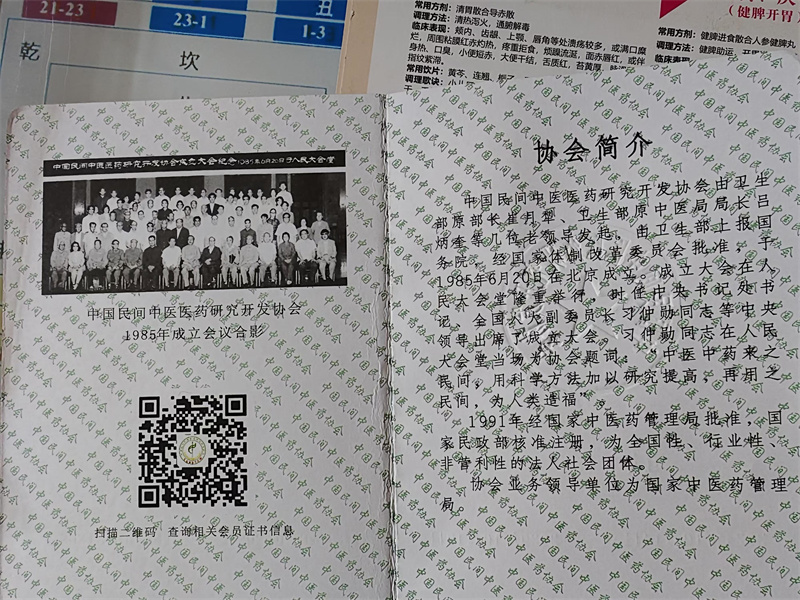 21-23
23-1
丑
1-3
乾
坎
常用方剂：清胃散合导赤散
调理方法：清热泻火，通腑解毒
临床表现：颊内、齿龈、上颚、唇角等处溃疡较多，或满口糜
烂，周围粘膜红赤灼热，疼重拒食，烦躁流涎，面赤唇红，或伴
身热、口臭，小便短赤，大便干结，舌质红，苔黄厚
指纹紫滞。
常用饮片：黄芩、连翘、栀子
调理歌诀：
（健脾开胃
常用方剂：健脾进食散合人参健脾丸
调理方法：健脾助运，开胃
临床表现：
中国民间中医医药研究开发协会成立大会纪念1985年6月20日于人民大会堂
中国民间中医医药研究开发协会
1985年成立会议合影
扫描二维码 查询相关会员证书信息
协会简介
中国民间中医医药研究开发协会由卫生
部原部长崔月犁、卫生部原中医局局长吕
炳奎等几位老领导发起，由卫生部上报国
务院，经国家体制改革委员会批准，于
1985年6月20日在北京成立。成立大会在人
民大会堂隆重举行，时任中央书记处书
记、全国人大副委员长习仲勋同志等中央
领导出席了成立大会。习仲勋同志在人民
大会堂当场为协会题词：“中医中药来之
民间，用科学方法加以研究提高，再用之
民间，为人类造福”。
1991年经国家中医药管理局批准，国
家民政部核准注册，为全国性、行业性、
非营利性的法人社会团体。
协会业务领导单位为国家中医药管理
局。
中国民间中医药协会